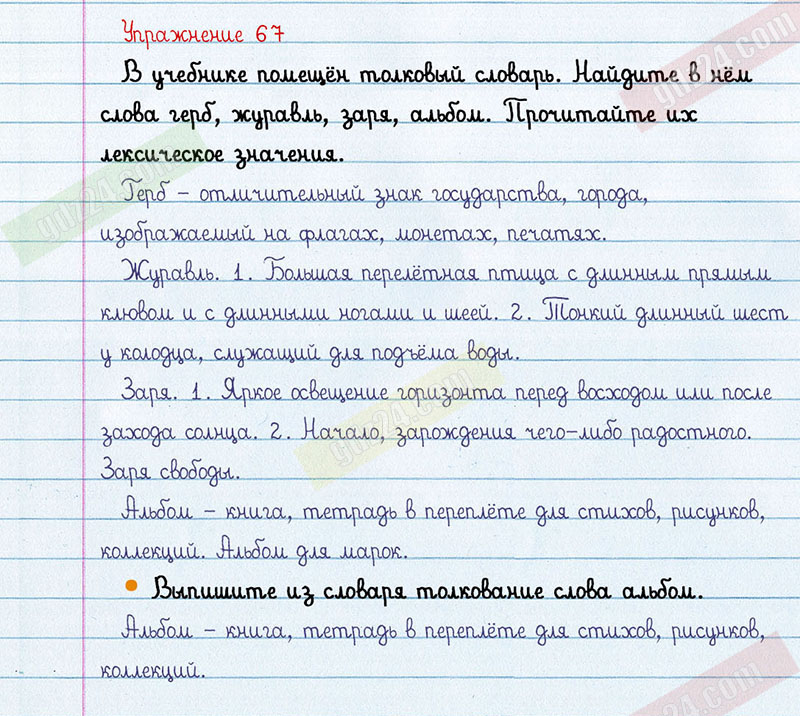 Упражнение 67
В учебнике помещён толковый словарь. Найдите в нём
слова герб, журавль, заря, альбом. Прочитайте их
лексическое значения.
Герб – отличительный знак государства, города,
изображаемый на флагах, монетах, печатях.
Журавль. 1. Большая перелётная птица с длинным прямым
клювом и с длинными ногами и шеей. 2. Тонкий длинный шест
у колодца, служащий для подъёма воды.
Заря. 1. Яркое освещение горизонта перед восходом или после
захода солнца. 2. Начало, зарождения чего-либо радостного.
Заря свободы.
Альбом – книга, тетрадь в переплёте для стихов, рисунков,
коллекций. Альбом для марок.
• Выпишите из словаря толкование слова альбом.
Альбом – книга, тетрадь в переплёте для стихов, рисунков,
коллекций.
gdz24.com
gdz24.com
gdz24.com
gdz24.com